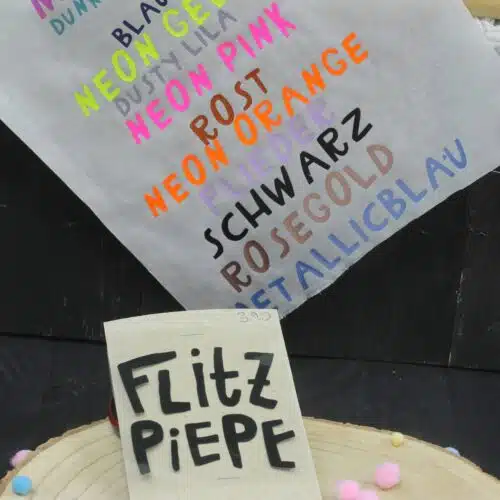 DUNK
BLAU
NEON GEL
DUSTY LILA
NEON PINK
ROST
NEON ORANGE
FLIEDER
SCHWARZ
ROSEGOLD
METALLICBLAU
3.90
FLitZ
PiEPE